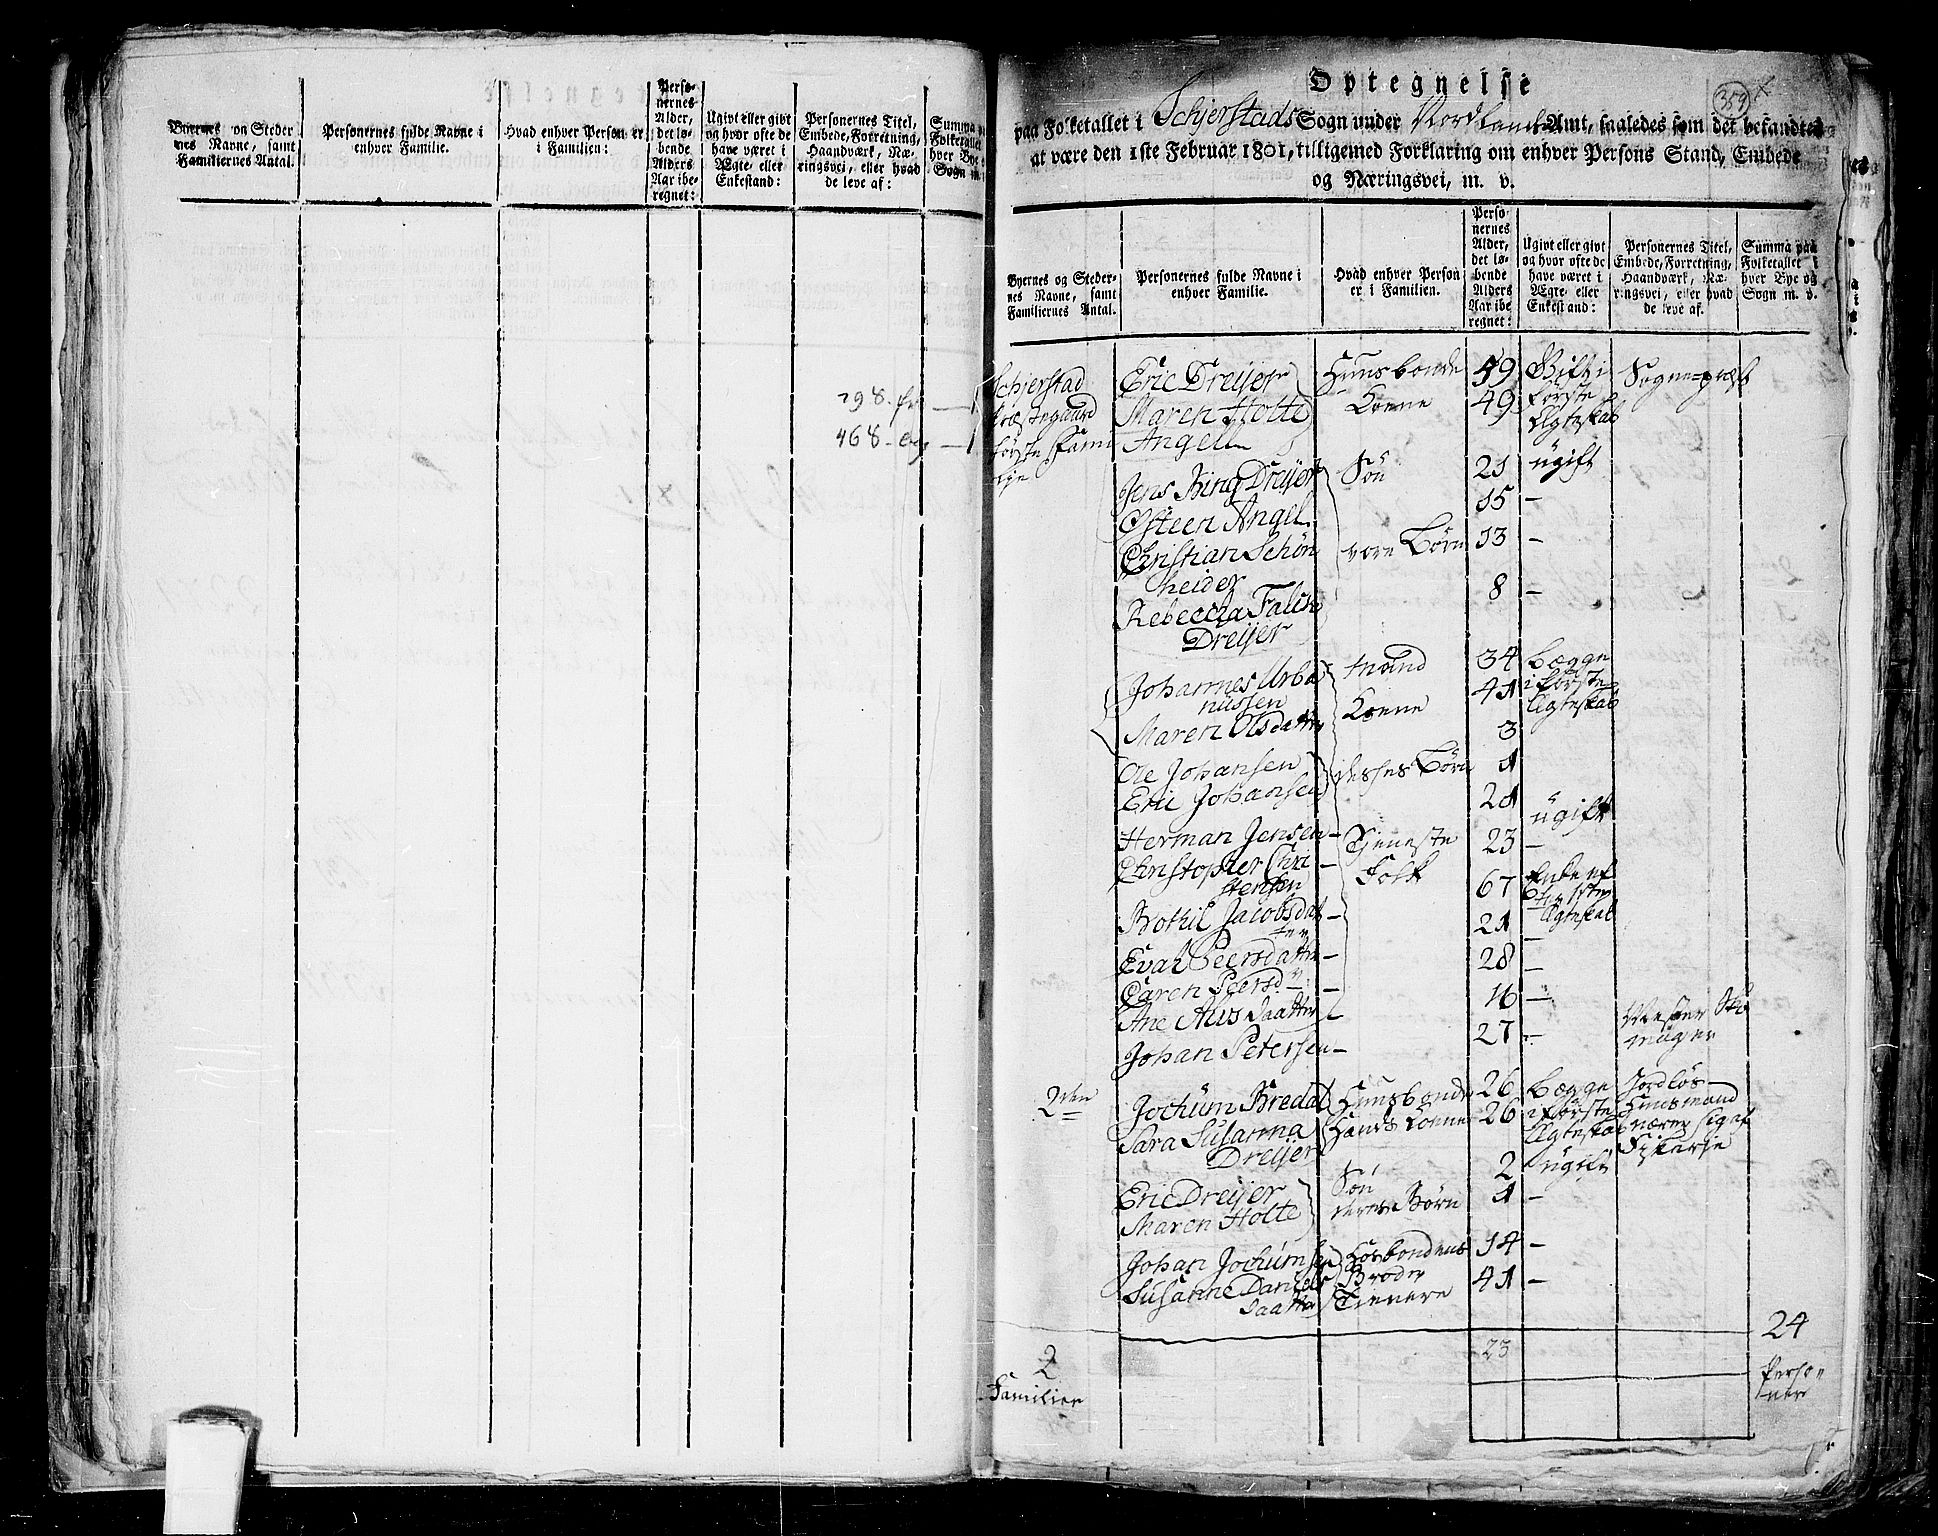 Byernes og Steder
nes Navne, samt
Familiernes Antal.
Personernes fulde Navne i
enhver Familie.
Hvad enhver Person er
i Familien:
Perso-
nernes
Alder,
det lø-
bende
Alders
Aar ibe-
regnet:
Ugivt eller givt
og hvor ofte de
have været i
Ægte- eller
Enkestand:
Personernes Titel,
Embede, Forretning,
Haandværk, Næ-
ringsvei, eller hvad
de leve af:
Summa
Folketallet
hver Bye
Sogn m.
798.
468-
359
Optegnelse
paa Folketallet i Schjerstads Sogn under Nordlands Amt, saaledes som det befandtes
at være den 1ste Februar 1801, tilligemed Forklaring om enhver Persons Stand, Embede
og Næringsvei, m. v.
Byernes og Steder-
nes Navne, samt
Familiernes Antal.
Personernes fulde Navne i
enhver Familie.
Hvad enhver Person
er i Familien.
Perso-
nernes
Alder,
det lø-
bende
Alders
Aar ibe
regnet:
Ugivt eller givt
og hvor ofte de
have været i
Ægte- eller
Enkestand:
Personernes Titel,
Embede, Forretning,
Haandværk, Næ-
ringsvei, eller hvad
de leve af.
Summa paa
Folketallet i
hver Bye og
Sogn m. v.
Schjerstad
Præstegaard
første Fami
lje
Eric Dreijer Huusbonde 59 Gift i Sogne-præst
Maren Holte Kone 49 første
Angell Ægteskab
Jens Bing Dreijer Søn 21 ugift
Østeen Angel 15 -
Christian Schøn 13 -
heider
vore Børn
Rebeccha Falch 8 -
Dreijer
Johannes Urba Mand 34 begge
nussen
Maren Olsdatter Kone 41 i første
Ægteskab
Ole Johansen 3
Eric Johansen 1
disses Børn
Herman Jensen - Tjeneste 21 ugift
Christopher Chri - Folk 23 -
stensen
Bothil Jacobsdat - 67 Enke ef
ter første
Ægteskab
Evah Peersdatter - 21 -
Caren Peersd - 28 -
Ane Nilsdaatter 16 -
Johan Petersen - 27 - Mester Sko
mager
2den
Jochum Bredal Huusbonde 26 begge Jordløs
Sara Susanna Hands Kone 26 i første Huusmand
Dreijer Ægteskab nærer sig af
Fiskerie
Eric Dreijer Søn 2 ugift
Maren Holte deres Børn 1 -
Johan Jochumsen Hosbondens 14 -
Broder
Susanne Daniels 41 -
daatter Tienere
23
24
Perso-
ner
2
Familier